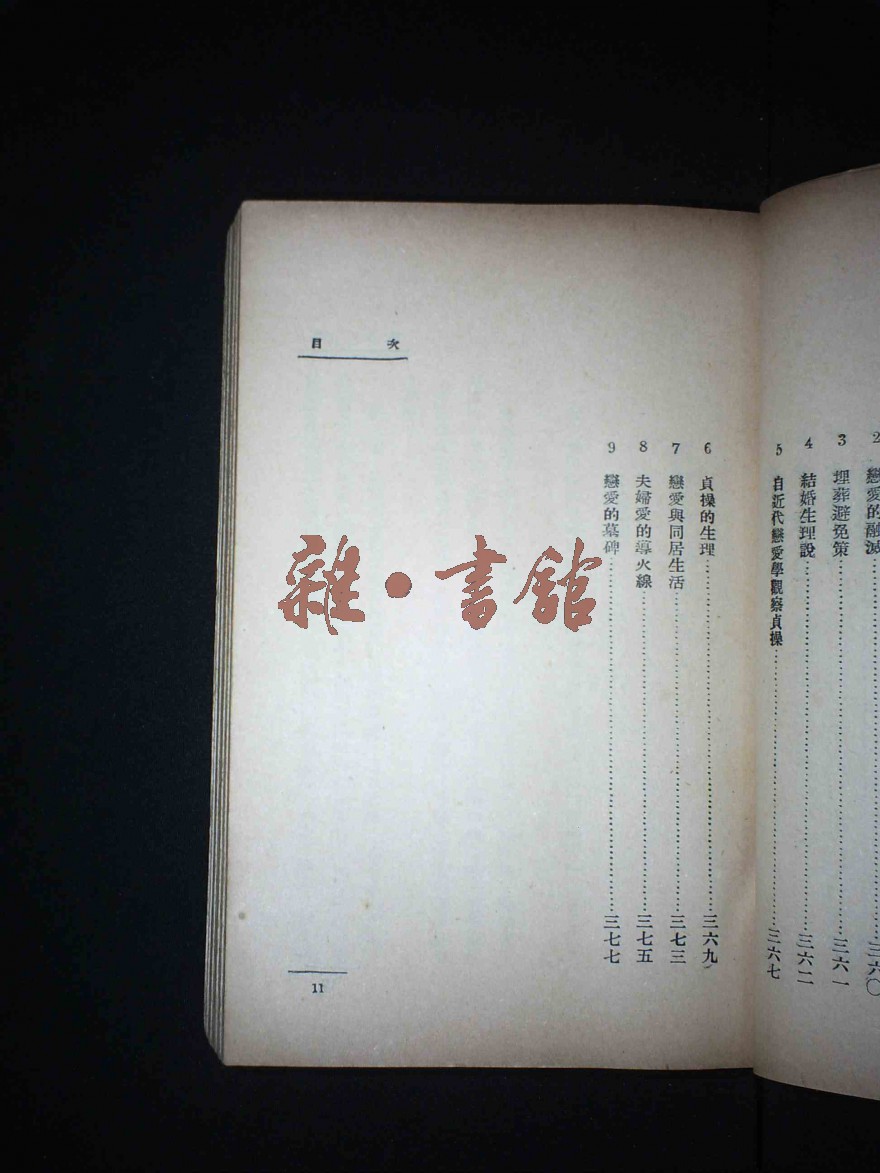 目次
2 戀愛的融滅…三六〇
3 埋葬避免策…三六一
4 結婚生理說…三六二
5 自近代戀愛學觀察貞操…三六七
6 貞操的生理…三六九
7 戀愛與同居生活…三七三
8 夫婦愛的導火線…三七五
9 戀愛的墓碑…三七七
11
雜•書館